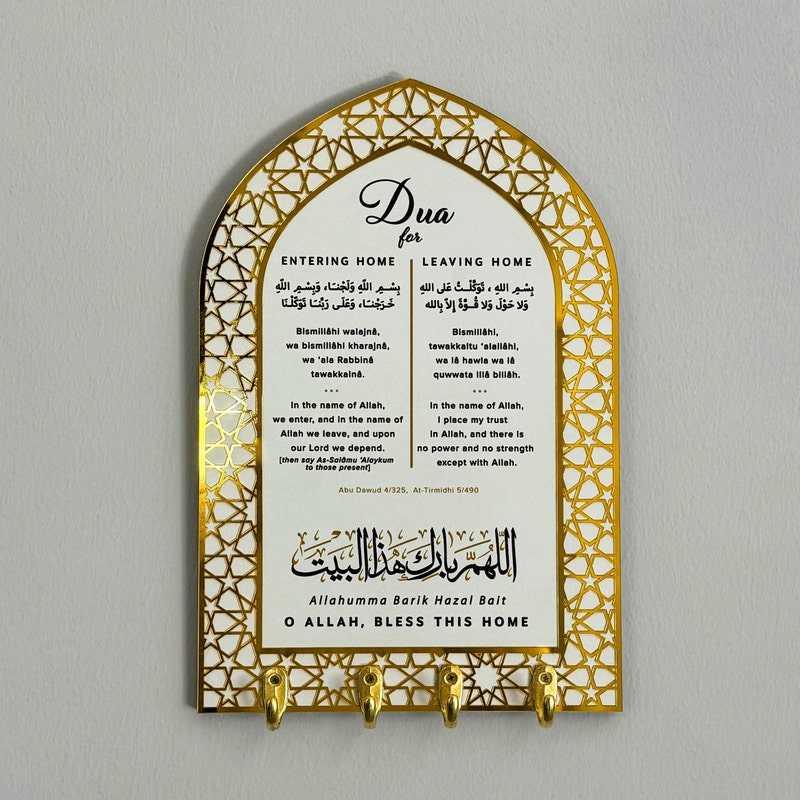 Dua
for
ENTERING HOME
بِسْمِ اللّهِ وَلَجْنَا، وَبِسْمِ اللّهِ
خَرَجْنَا، وَعَلَى رَبِّنَا تَوَكَّلْنَا
Bismillâhi walajnâ,
wa bismillâhi kharajnâ,
wa ‘ala Rabbinâ
tawakkalnâ.
In the name of Allah,
we enter, and in the name of
Allah we leave, and upon
our Lord we depend.
[then say As-Salâmu ‘Alaykum
to those present]
LEAVING HOME
بِسْمِ اللهِ ، تَوَكَّلْتُ عَلى اللهِ
وَلا حَوْلَ وَلا قُوَّةَ إِلاّ بِالله
Bismillâhi,
tawakkaltu ‘alallâhi,
wa lâ hawla wa lâ
quwwata illâ billâh.
In the name of Allah,
I place my trust
in Allah, and there is
no power and no strength
except with Allah.
Abu Dawud 4/325, At-Tirmidhi 5/490
اللّهُمَّ بَارِك هَذا البَيَت
Allahumma Barik Hazal Bait
O ALLAH, BLESS THIS HOME